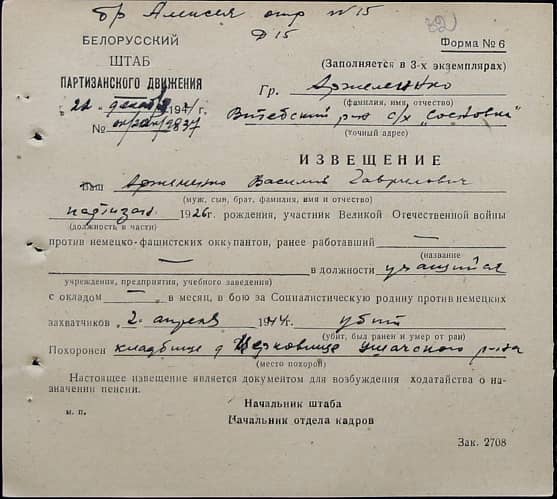 бр Алексея отр №15
Д 15
БЕЛОРУССКИЙ
ШТАБ
ПАРТИЗАНСКОГО ДВИЖЕНИЯ
Форма № 6
(Заполняется в 3-х экземплярах)
Гр.
(фамилия, имя, отчество)
194
№
Витебский р-н с/х "Сосновка"
(точный адрес)
ИЗВЕЩЕНИЕ
Ваш Василий Гаврилович
(муж, сын, брат, фамилия, имя и отчество)
партизан 1926 г. рождения, участник Великой Отечественной войны
(должность в части)
против немецко-фашистских оккупантов, ранее работавший —
(название
— в должности учащийся
учреждения, предприятия, учебного заведения)
с окладом — в месяц, в бою за Социалистическую родину против немецких
захватчиков 2 апреля 1944 г. убит
(убит, был ранен и умер от ран)
Похоронен кладбище д Церковище Ушачского р-на
(место похорон)
Настоящее извещение является документом для возбуждения ходатайства о на-
значении пенсии.
Начальник штаба
м. п.
Начальник отдела кадров
Зак. 2708